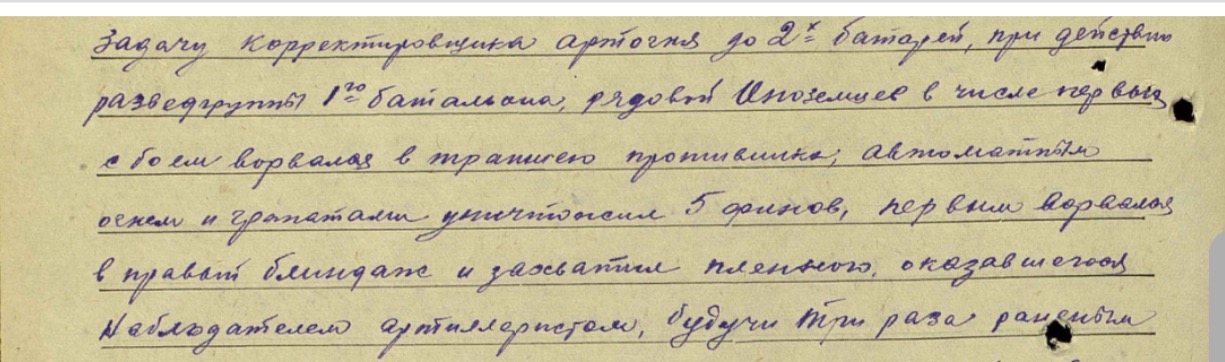 задачу корректировщика артогня до 2х батарей, при действии
разведгруппы 1го батальона, рядовой Иноземцев в числе первых
с боем ворвался в траншею противника, автоматным
огнем и гранатами уничтожил 5 финов, первым ворвался
в правый блиндаж и захватил пленного, оказавшегося
наблюдателем артиллеристом, будучи три раза раненым